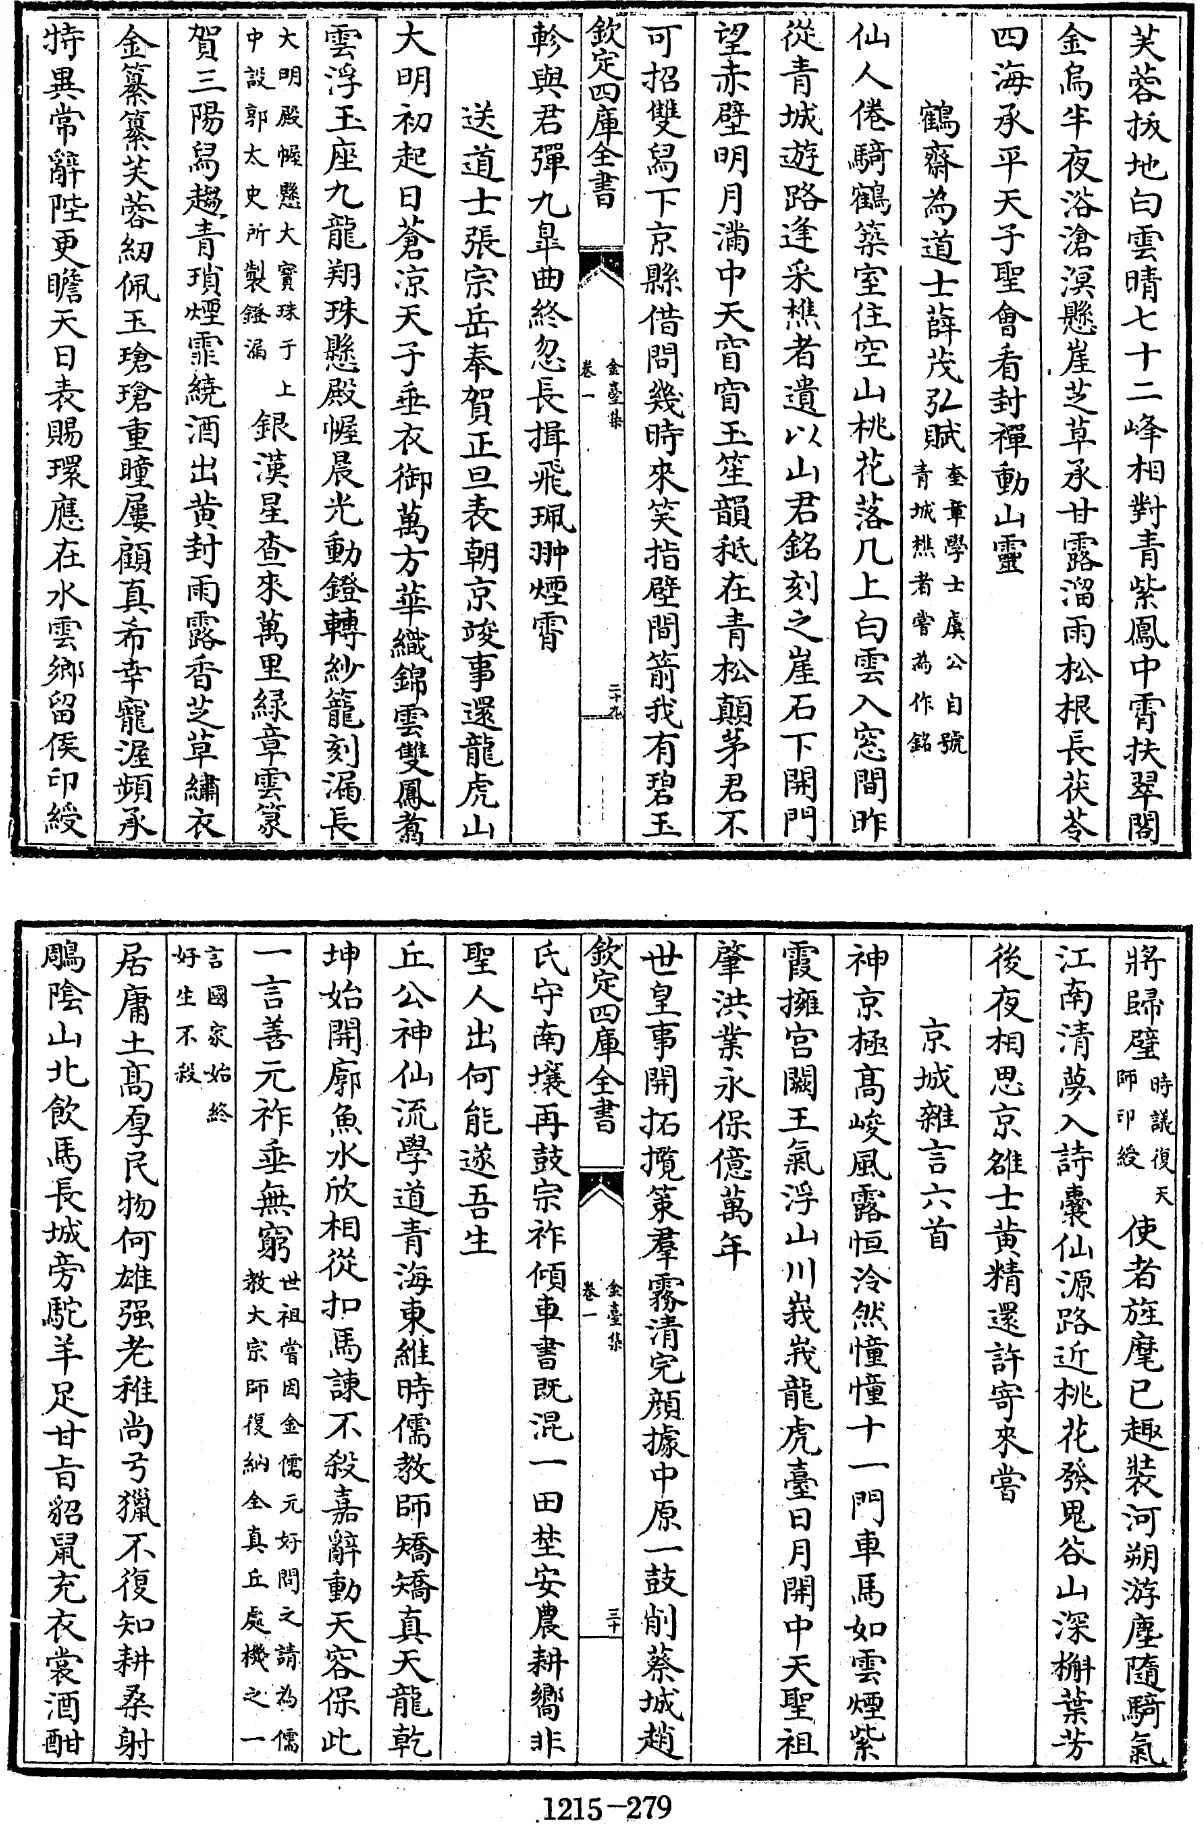 芙蓉拔地白雲晴七十二峰相對青紫鳳中霄扶翠閣
金烏半夜浴滄溟懸崖芝草承甘露溜雨松根長茯苓
四海承平天子聖會看封禪動山靈
鶴齋為道士薛茂弘賦奎章學士虞公自號
青城樵者嘗為作銘
仙人倦騎鶴築室住空山桃花落几上白雲入窓間昨
從青城遊路逢采樵者遺以山君銘刻之崖石下開門
望赤壁明月滿中天窅窅玉笙韻秪在青松顛茅君不
可招雙舃下京縣借問幾時來笑指壁間箭我有碧玉
欽定四庫全書
金臺集
卷一
二十九
軫與君彈九臯曲終忽長揖飛珮翀煙霄
送道士張宗岳奉賀正旦表朝京竣事還龍虎山
大明初起日蒼凉天子垂衣御萬方華織錦雲雙鳳翥
雲浮玉座九龍翔珠懸殿幄晨光動鐙轉紗籠刻漏長
大明殿幄懸大寳珠于上
中設郭太史所製鐙漏
銀漢星查來萬里緑章雲篆
賀三陽舃趨青瑣煙霏繞酒出黄封雨露香芝草繡衣
金纂纂芙蓉紉佩玉瑲瑲重瞳屢顧真希幸寵渥頻承
特異常辭陛更瞻天日表賜環應在水雲鄉留侯印綬
將歸璧時議復天
師印綬
使者旌麾已趣裝河朔游塵隨騎氣
江南清夢入詩囊仙源路近桃花發鬼谷山深槲葉芳
後夜相思京雒士黄精還許寄來嘗
京城雜言六首
神京極高峻風露恒泠然憧憧十一門車馬如雲煙紫
霞擁宫闕王氣浮山川峩峩龍虎臺日月開中天聖祖
肇洪業永保億萬年
世皇事開拓攬策羣霧清完顔據中原一鼓削蔡城趙
欽定四庫全書
金臺集
卷一
三十
氏守南壤再鼓宗祚傾車書既混一田埜安農耕嚮非
聖人出何能遂吾生
丘公神仙流學道青海東維時儒教師矯矯真天龍乾
坤始開廓魚水欣相從扣馬諫不殺嘉辭動天容保此
一言善元祚垂無窮世祖嘗因金儒元好問之請為儒
教大宗師復納全真丘處機之一
言國家始終
好生不殺
居庸土髙厚民物何雄强老稚尚弓獵不復知耕桑射
鵰陰山北飲馬長城旁駝羊足甘旨貂鼠充衣裳酒酣
1215—279